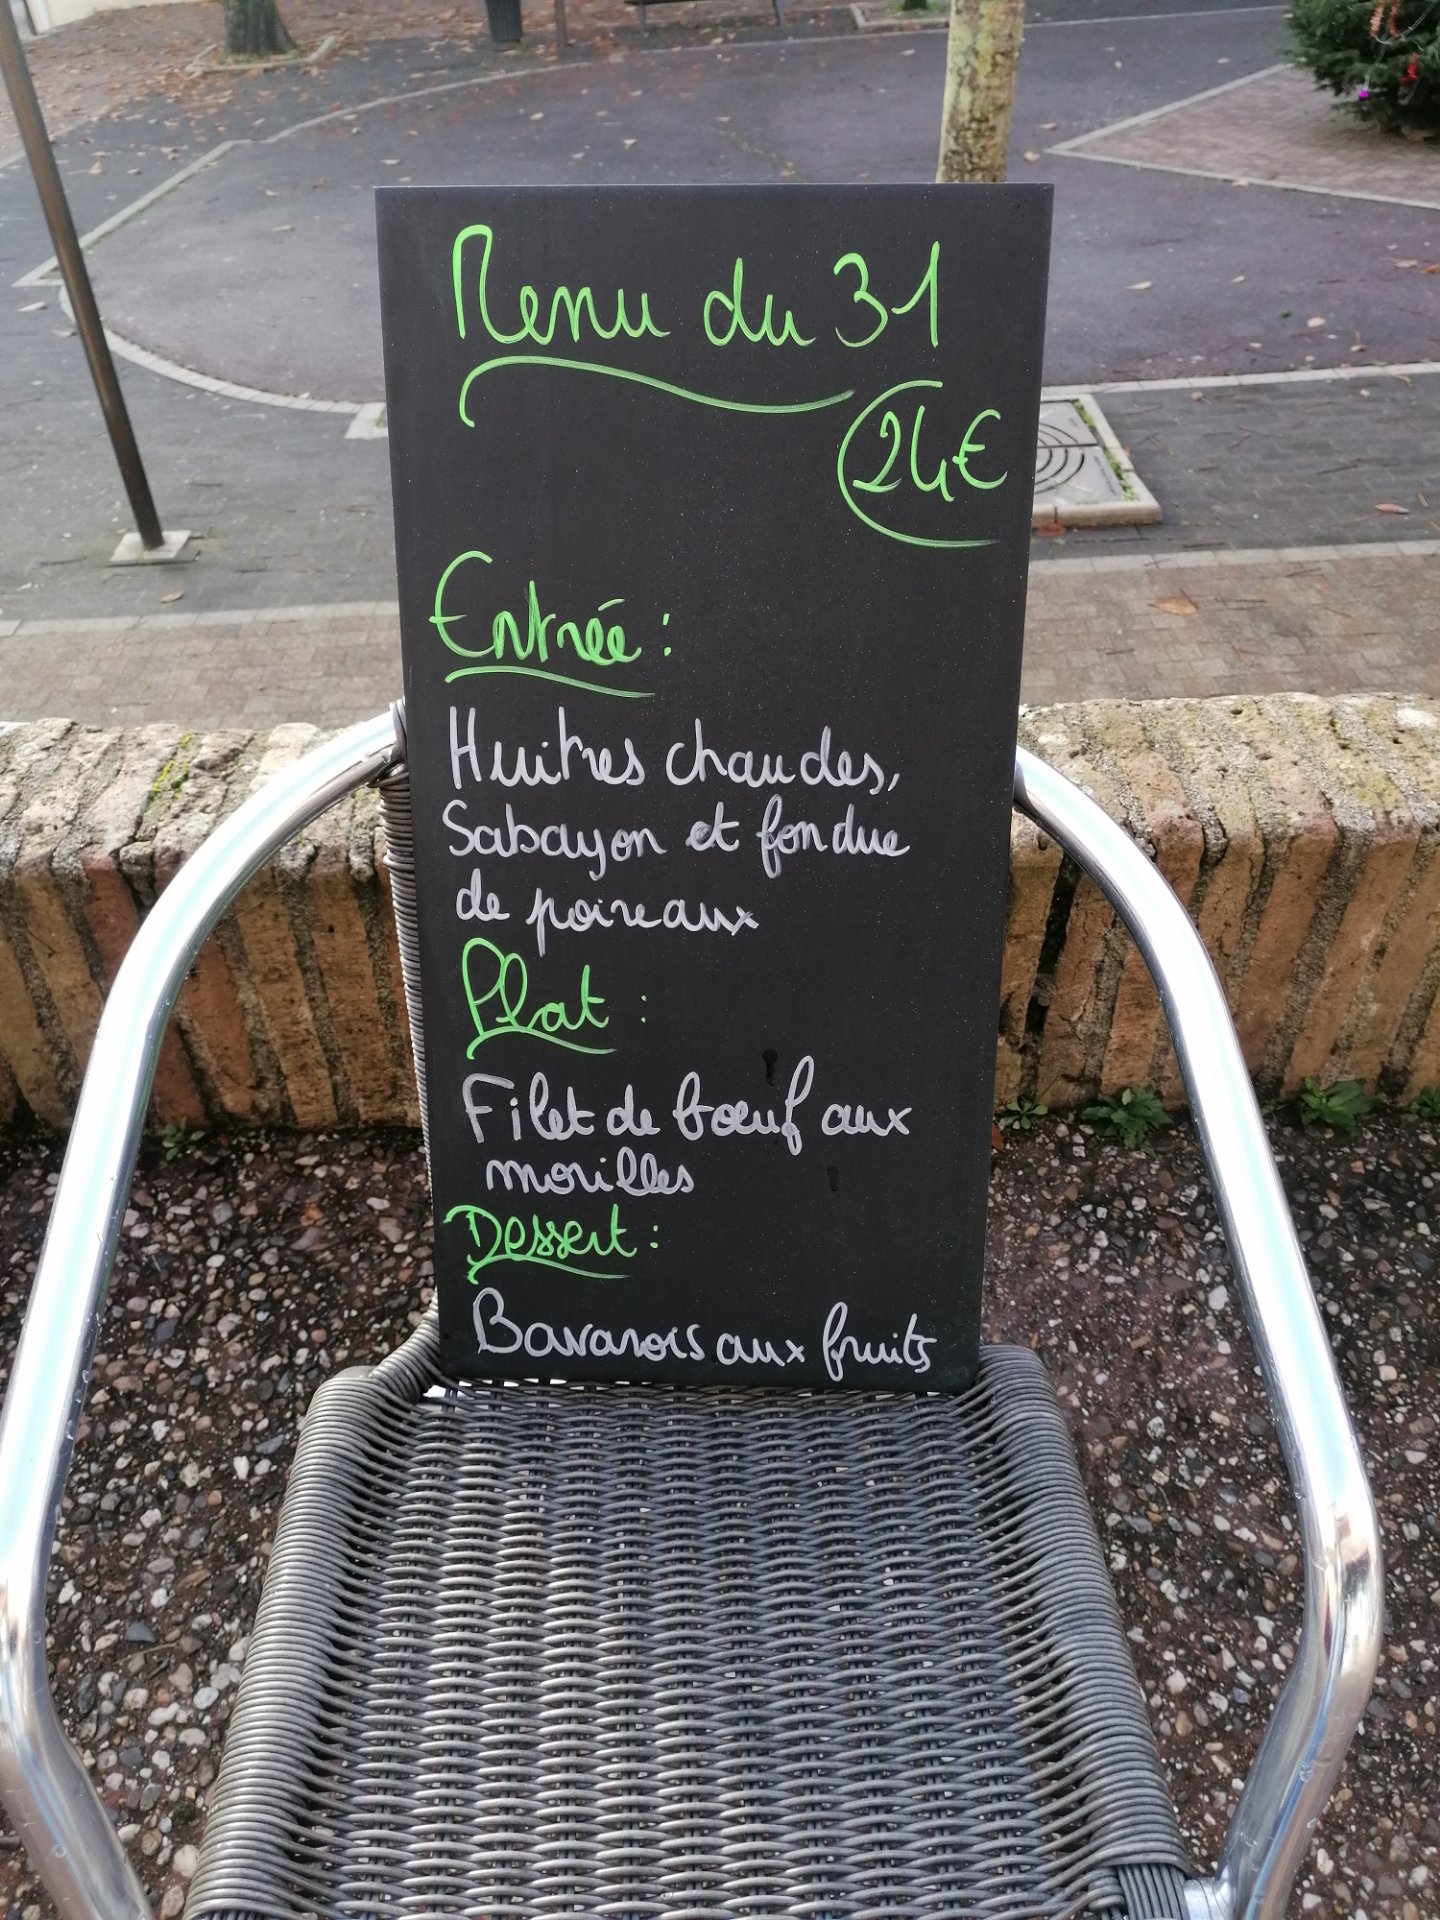 Menu du 31
24€
Entrée :
Huitres chaudes,
Sabayon et fondue
de poireaux
Plat :
Filet de bœuf aux
morilles
Dessert :
Bavarois aux fruits